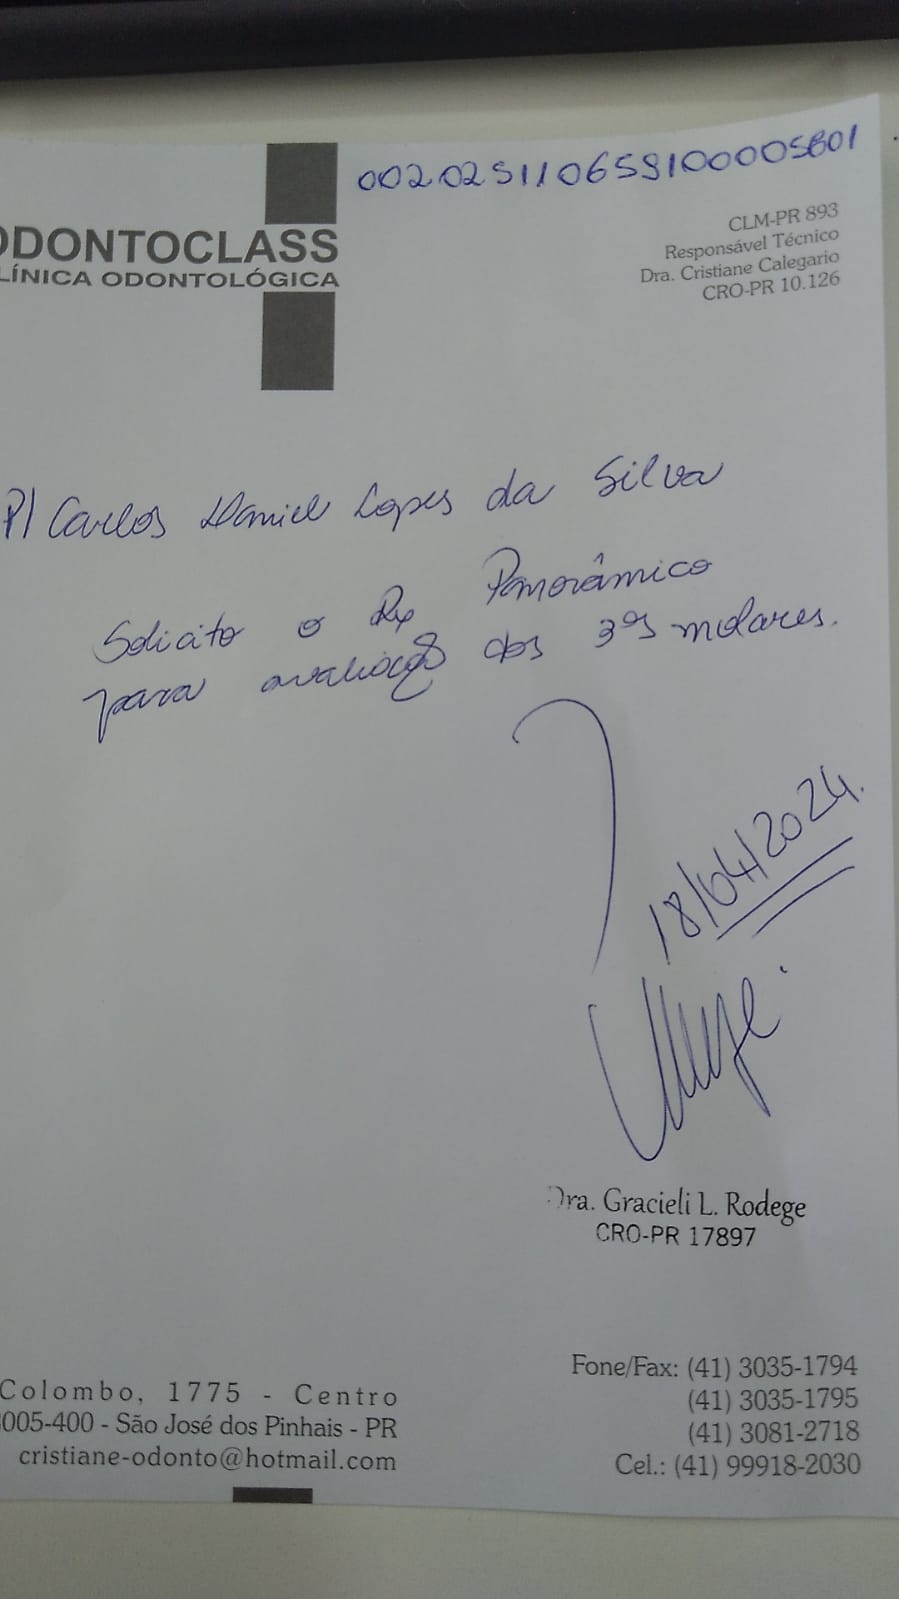 002025110659100005601
ODONTOCLASS
LÍNICA ODONTOLÓGICA
CLM-PR 893
Responsável Técnico
Dra. Cristiane Calegario
CRO-PR 10.126
P/ Carlos Daniel Lopes da Silva
Solicito o Rx Panorâmico
para avaliação dos 3ºs molares.
18/04/2024.
Dra. Gracieli L. Rodege
CRO-PR 17897
Colombo, 1775 - Centro
005-400 - São José dos Pinhais - PR
cristiane-odonto@hotmail.com
Fone/Fax: (41) 3035-1794
(41) 3035-1795
(41) 3081-2718
Cel.: (41) 99918-2030